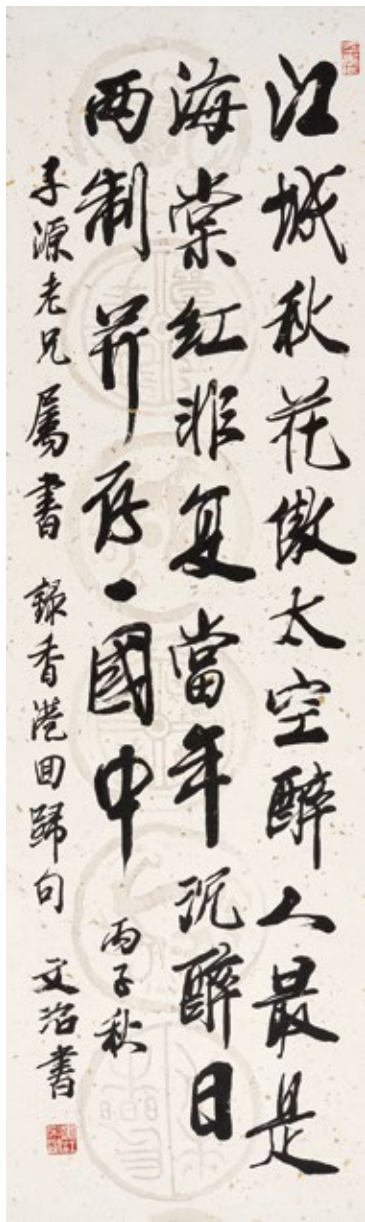 江城秋花傲太空醉人最是
海棠红非复當年沉醉日
两制并存一國中 丙子秋
子源老兄屬書 録香港回歸句 文治書